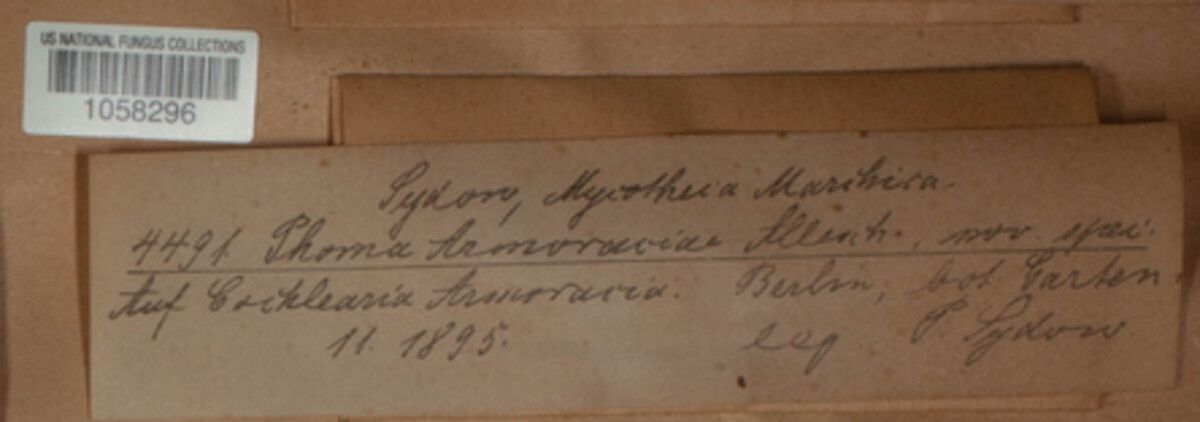 US NATIONAL FUNGUS COLLECTIONS
1058296
Sydow, Mycotheca Marchica.
4491. Phoma Armoraciae Allesch., nov. spei.
Auf Cochlearia Armoracia. Berlin, bot. Garten.
11. 1895. leg P. Sydow